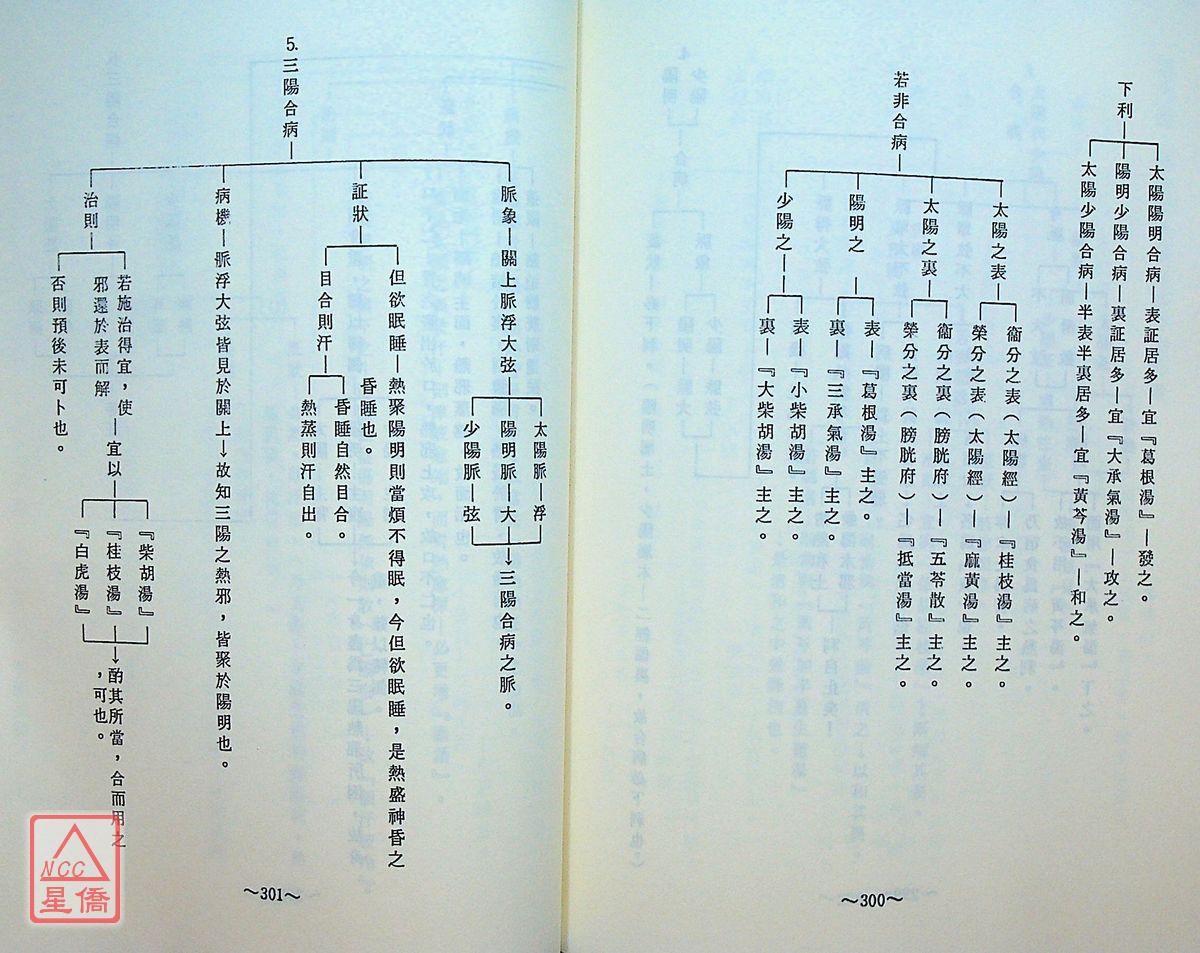 下利
太陽陽明合病—表証居多—宜『葛根湯』—發之。
陽明少陽合病—裏証居多—宜『大承氣湯』—攻之。
太陽少陽合病—半表半裏居多—宜『黃芩湯』—和之。
若非合病
太陽之表
衞分之表(太陽經)—『桂枝湯』主之。
榮分之表(太陽經)—『麻黃湯』主之。
太陽之裏
衞分之裏(膀胱府)—『五苓散』主之。
榮分之裏(膀胱府)—『抵當湯』主之。
陽明之
表—『葛根湯』主之。
裏—『三承氣湯』主之。
少陽之
表—『小柴胡湯』主之。
裏—『大柴胡湯』主之。
~300~
5.三陽合病
脈象—關上脈浮大弦
太陽脈—浮
陽明脈—大
少陽脈—弦
→三陽合病之脈。
証狀
但欲眠睡—熱聚陽明則當煩不得眠,今但欲眠睡,是熱盛神昏之
昏睡也。
目合則汗
昏睡自然目合。
熱蒸則汗自出。
病機—脈浮大弦皆見於關上→故知三陽之熱邪,皆聚於陽明也。
治則
若施治得宜,使
邪還於表而解
—宜以
『柴胡湯』
『桂枝湯』
『白虎湯』
→酌其所當,合而用之
,可也。
否則預後未可卜也。
~301~
NCC
星僑